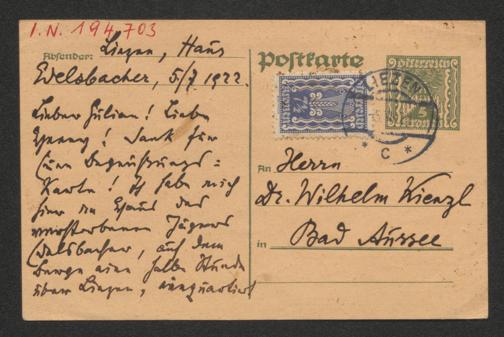 I.N. 194.703
Absender: Liezen, Haus
Edelsbacher, 5/7. 1922.
Lieber Julian! Liebe
Henny! Dank für
Eure Begrüßungs=
Karte! Ich habe mich
hier im Haus des
verstorbenen Jägers
Edelsbacher, auf dem
Berge eine halbe Stunde
über Liezen, einquartiert
Postkarte
Österreich
5
Kronen
7½
Österreich
LIEZEN
* C *
An Herrn
Dr. Wilhelm Kienzl
in Bad Aussee